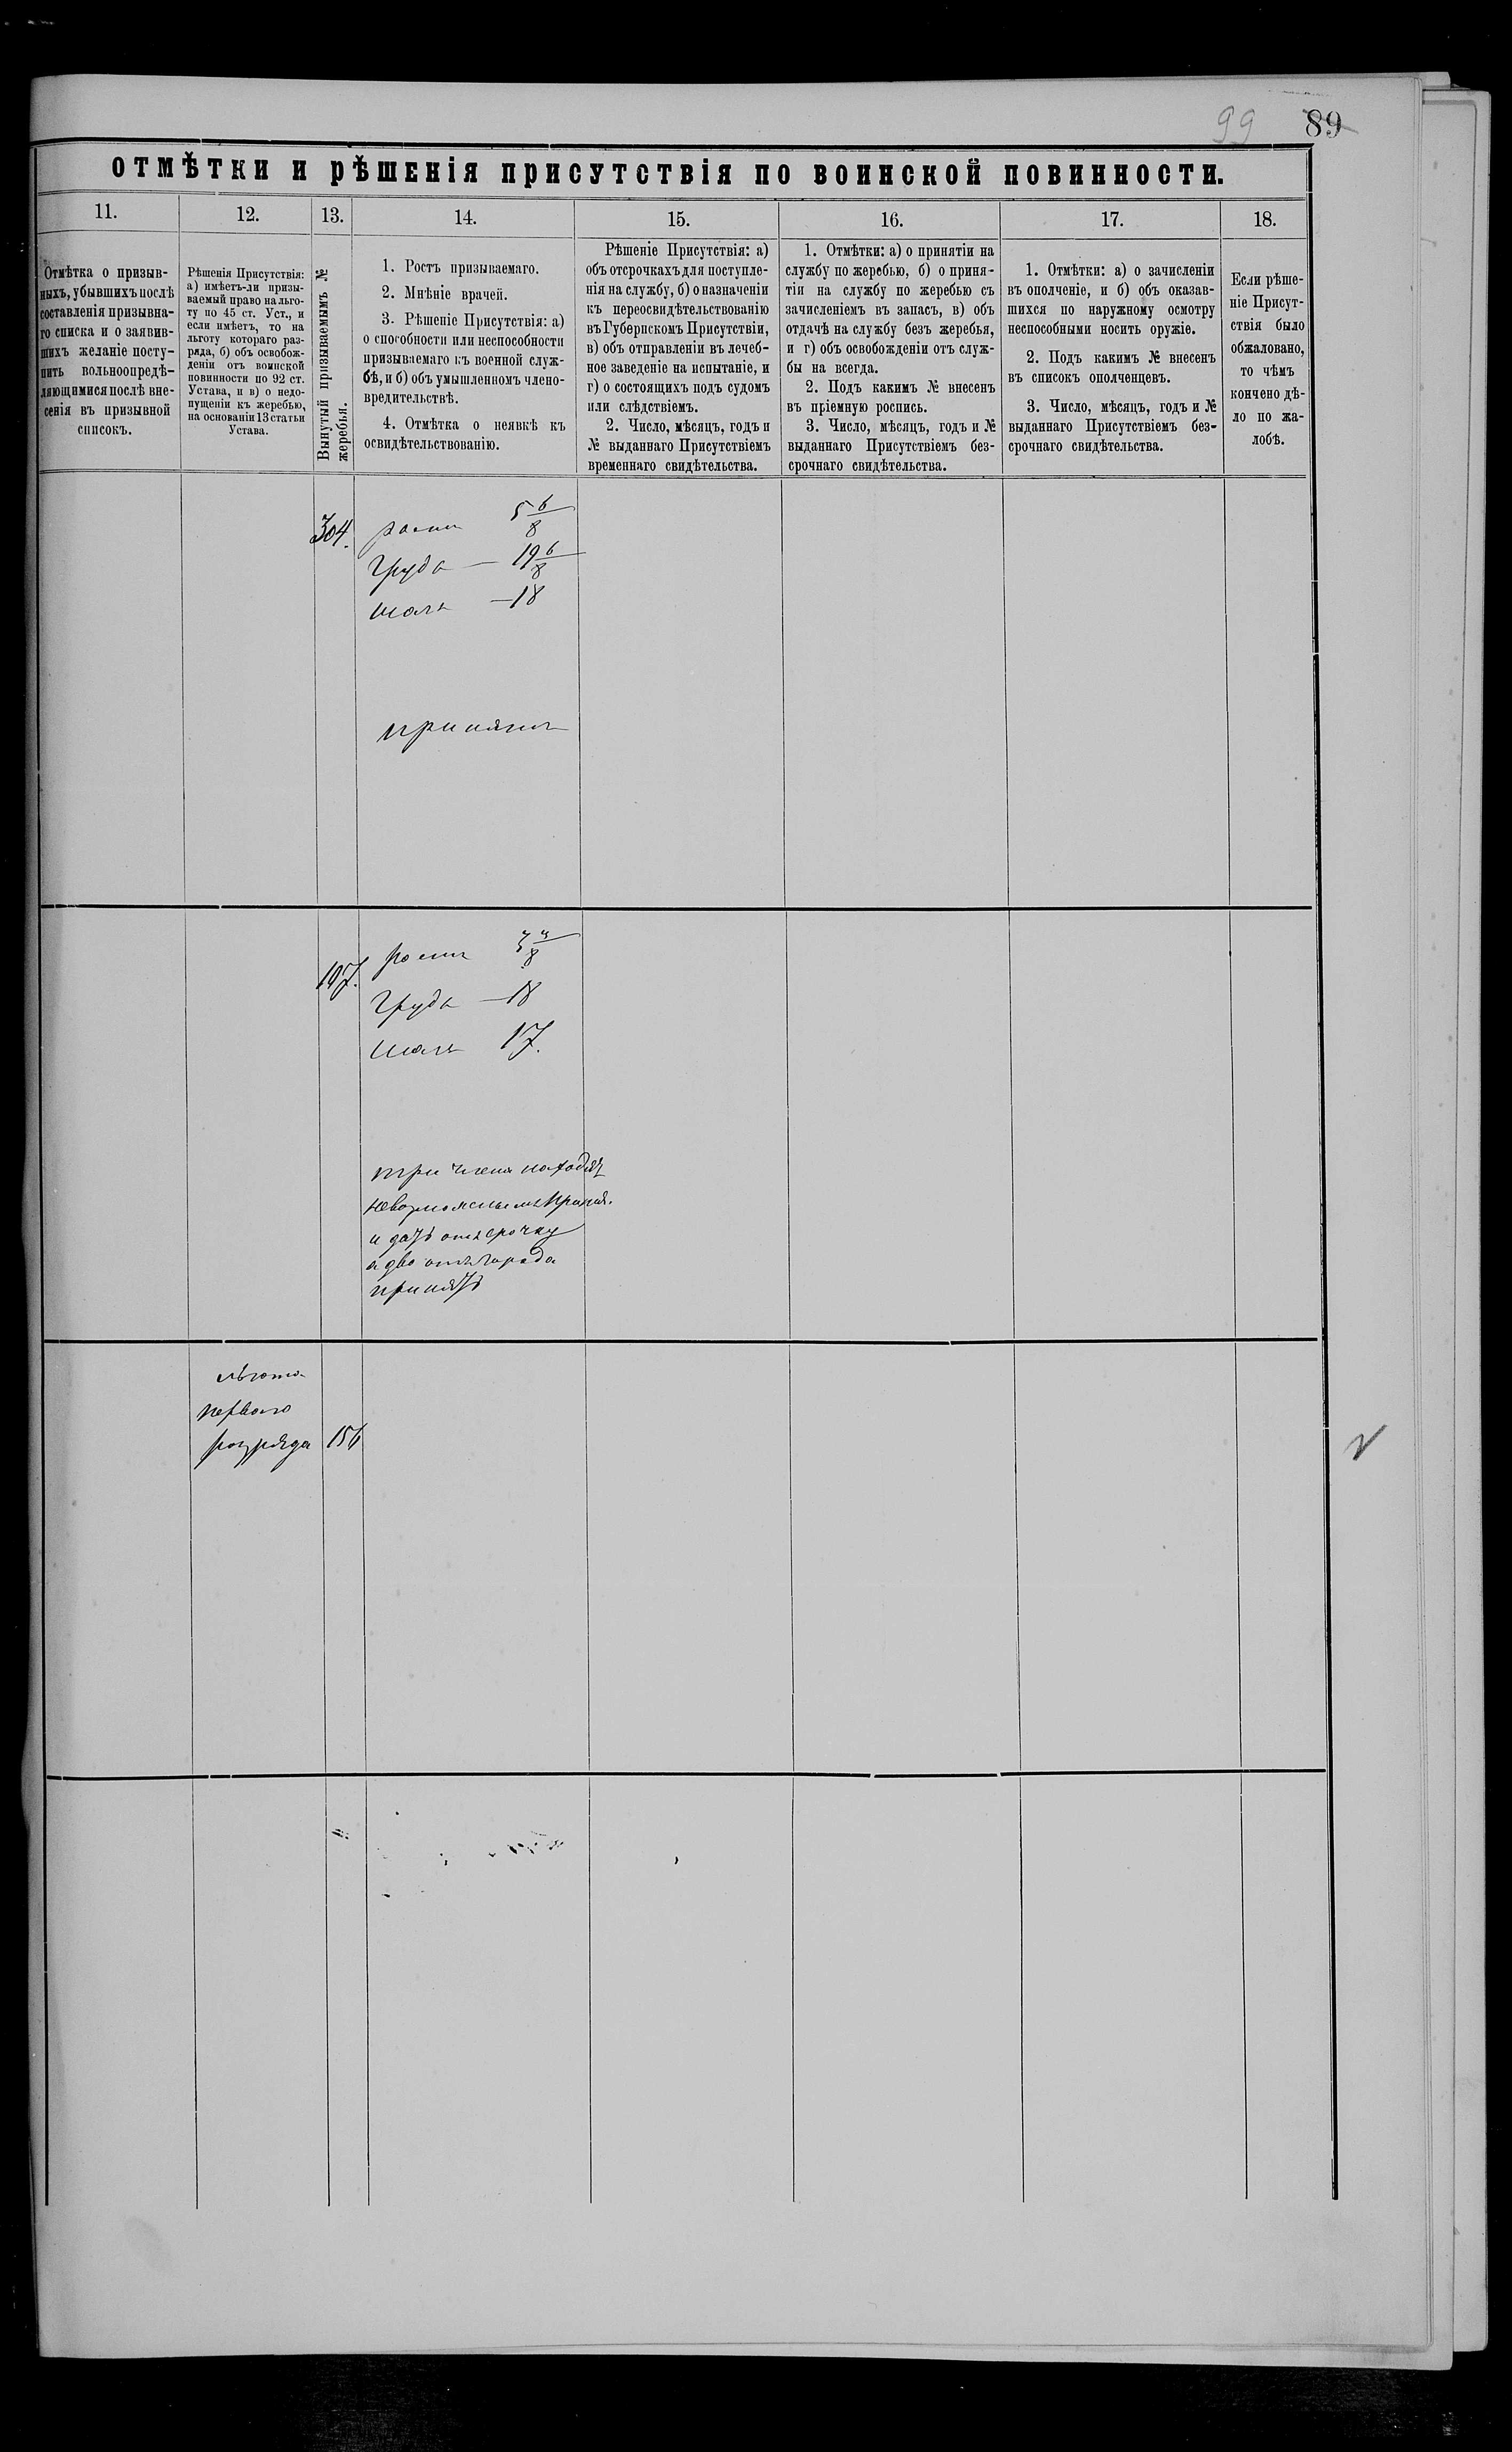 99 89
ОТМѢТКИ И РѢШЕНІЯ ПРИСУТСТВІЯ ПО ВОИНСКОЙ ПОВИННОСТИ.
11.
Отмѣтка о призыв-
ныхъ, убывшихъ послѣ
составленія призывна-
го списка и о заявив-
шихъ желаніе посту-
пить вольноопредѣ-
ляющимися послѣ вне-
сенія въ призывной
списокъ.
12.
Рѣшенія Присутствія:
а) имѣетъ-ли призы-
ваемый право на льго-
ту по 45 ст. Уст., и
если имѣетъ, то на
льготу котораго раз-
ряда, б) объ освобож-
деніи отъ воинской
повинности по 92 ст.
Устава, и в) о недо-
пущеніи къ жеребью,
на основаніи 13 статьи
Устава.
13.
Вынутый призываемымъ №
жеребья.
14.
1. Ростъ призываемаго.
2. Мнѣніе врачей.
3. Рѣшеніе Присутствія: а)
о способности или неспособности
призываемаго къ военной служ-
бѣ, и б) объ умышленномъ члено-
вредительствѣ.
4. Отмѣтка о неявкѣ къ
освидѣтельствованію.
15.
Рѣшеніе Присутствія: а)
объ отсрочкахъ для поступле-
нія на службу, б) о назначеніи
къ переосвидѣтельствованію
въ Губернскомъ Присутствіи,
в) объ отправленіи въ лечеб-
ное заведеніе на испытаніе, и
г) о состоящихъ подъ судомъ
или слѣдствіемъ.
2. Число, мѣсяцъ, годъ и
№ выданнаго Присутствіемъ
временнаго свидѣтельства.
16.
1. Отмѣтки: а) о принятіи на
службу по жеребью, б) о приня-
тіи на службу по жеребью съ
зачисленіемъ въ запасъ, в) объ
отдачѣ на службу безъ жеребья,
и г) объ освобожденіи отъ служ-
бы на всегда.
2. Подъ какимъ № внесенъ
въ пріемную роспись.
3. Число, мѣсяцъ, годъ и №
выданнаго Присутствіемъ без-
срочнаго свидѣтельства.
17.
1. Отмѣтки: а) о зачисленіи
въ ополченіе, и б) объ оказав-
шихся по наружному осмотру
неспособными носить оружіе.
2. Подъ какимъ № внесенъ
въ списокъ ополченцевъ.
3. Число, мѣсяцъ, годъ и №
выданнаго Присутствіемъ без-
срочнаго свидѣтельства.
18.
Если рѣше-
ніе Присут-
ствія было
обжаловано,
то чѣмъ
кончено дѣ-
ло по жа-
лобѣ.
304. ростъ 5 6/8
грудь — 19 6/8
шагъ — 18
принятъ
197. ростъ 3 4/8
грудь — 18
шагъ 17.
три члена находятъ
невозможнымъ принят.
и дать отсрочку
а два отъ города
принять
льгота
перваго
розряда 156